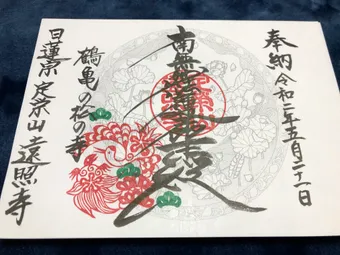 奉納 令和二年五月二十一日
南無
鶴亀の松の寺
日蓮宗 定栄山 遠照寺